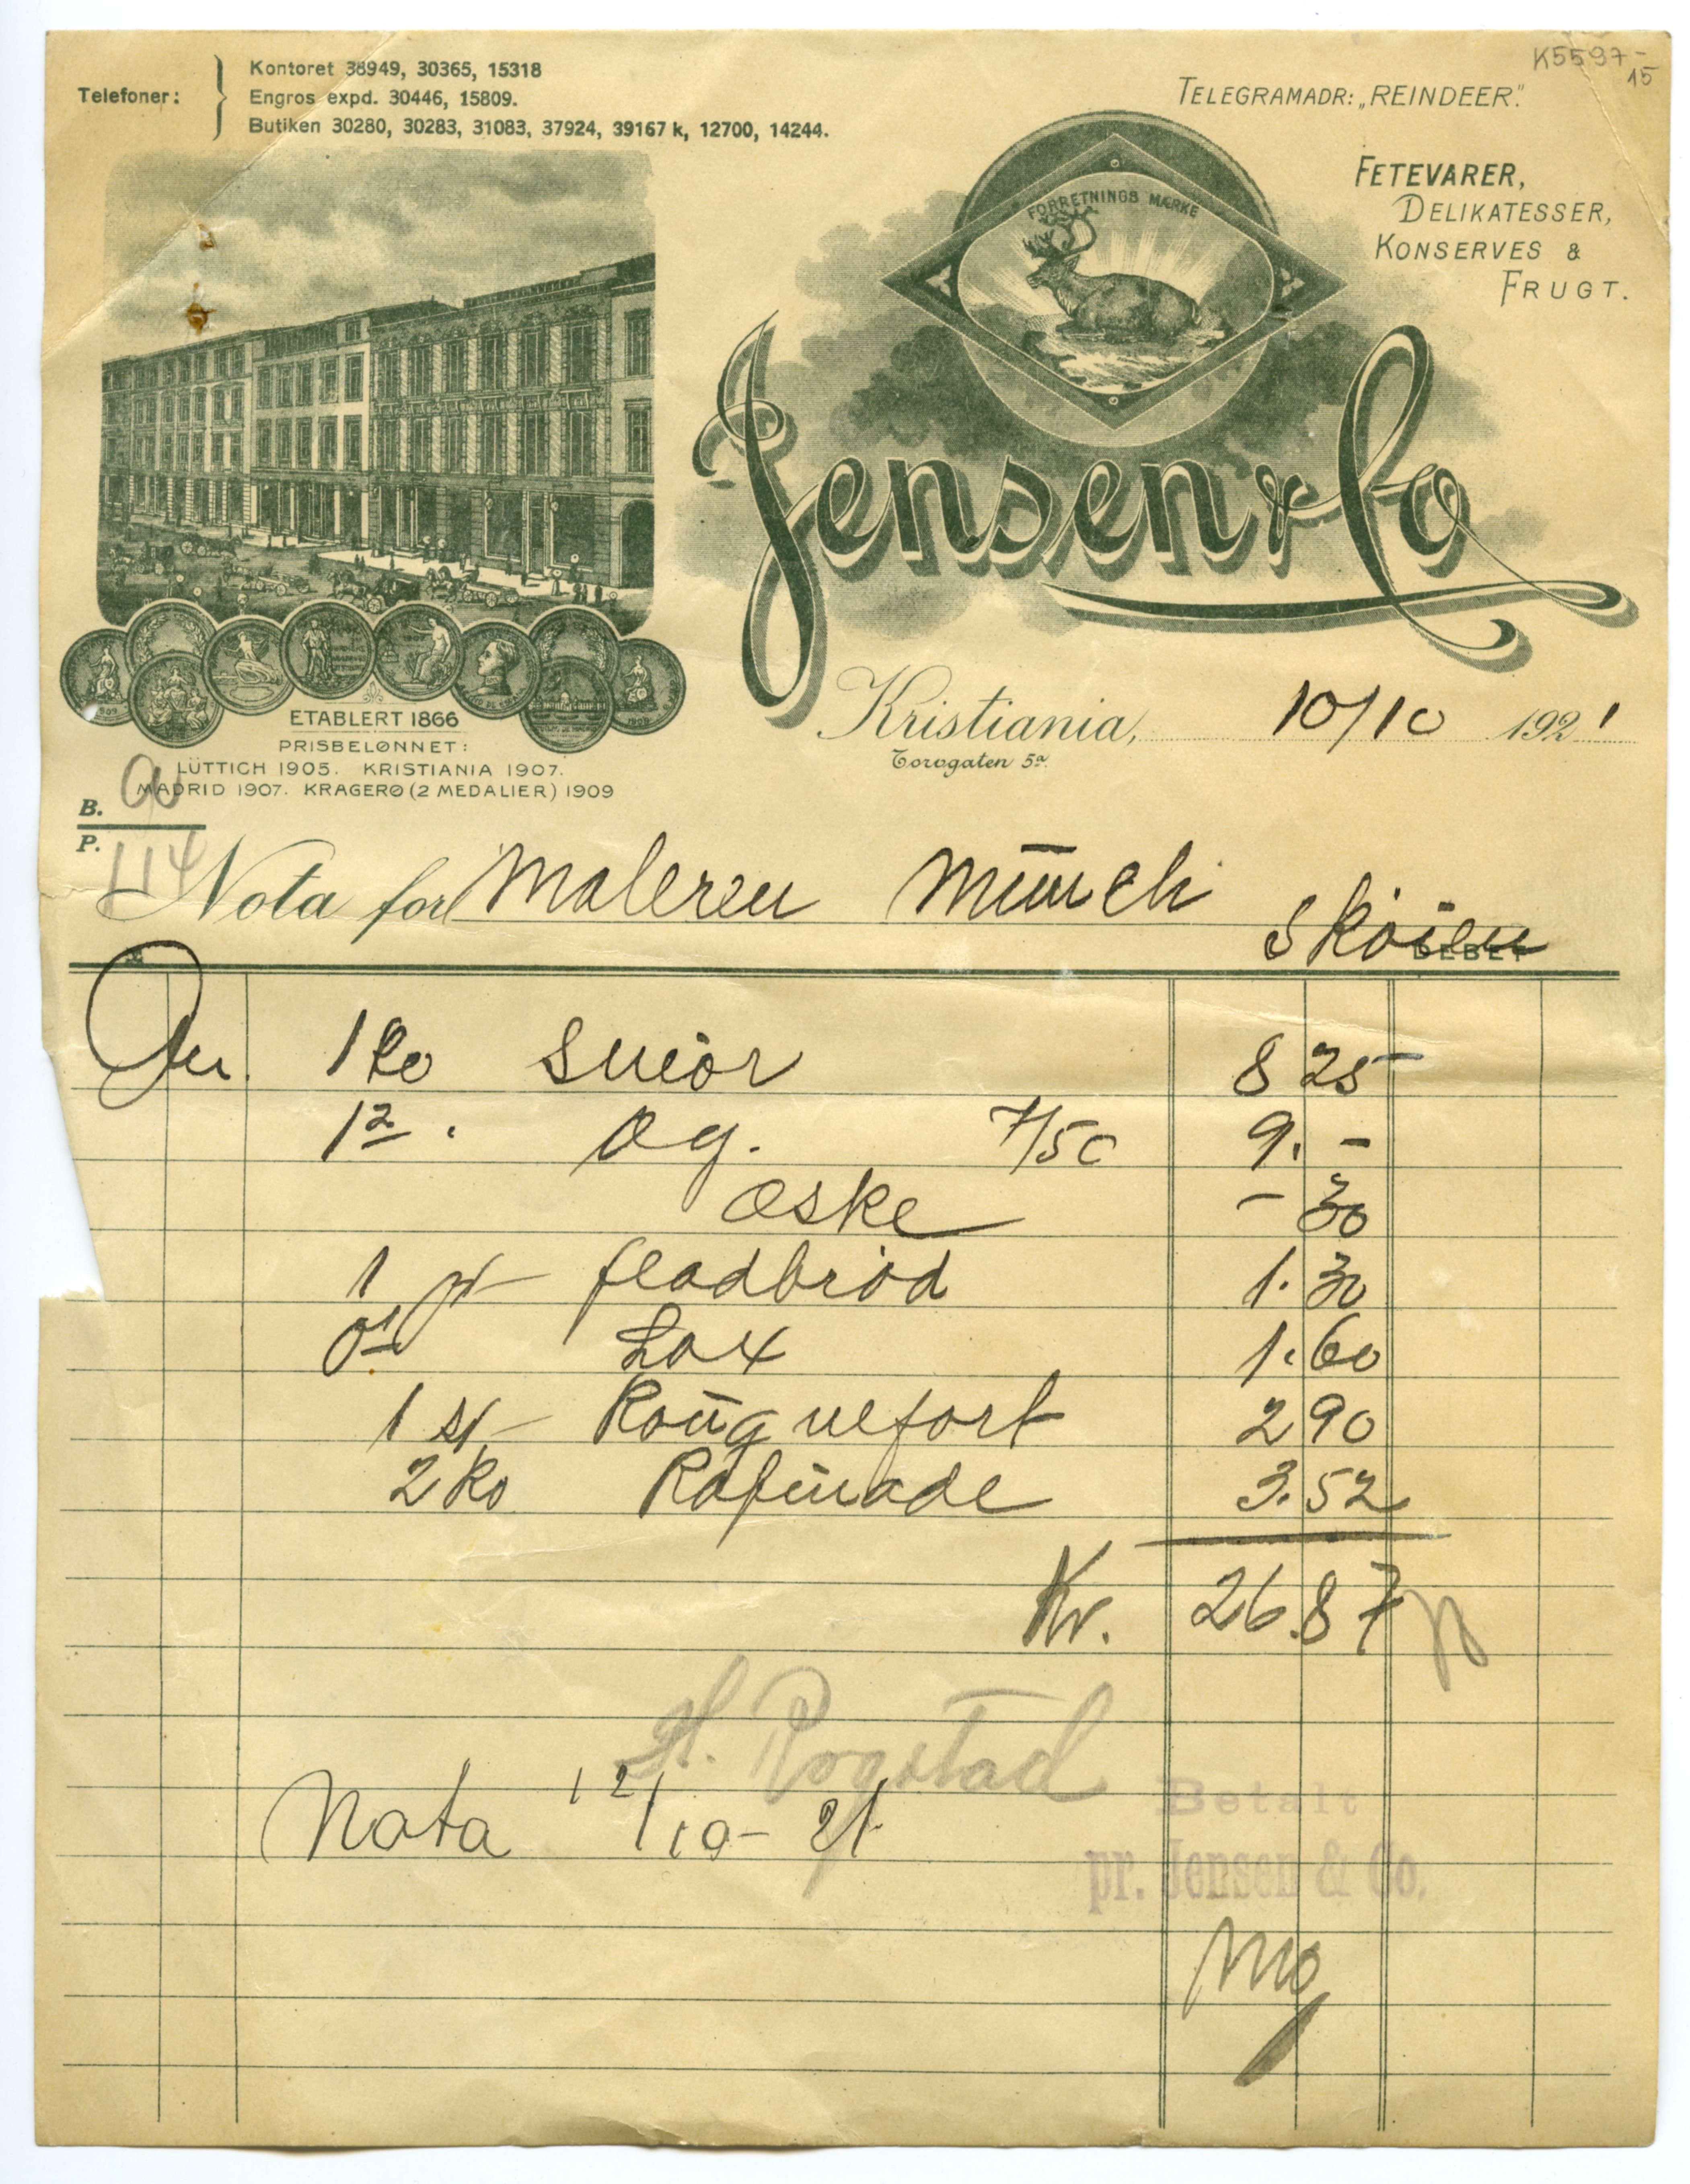 K5597-
15
Telefoner:
Kontoret 38949, 30365, 15318
Engros expd. 30446, 15809.
Butiken 30280, 30283, 31083, 37924, 39167 k, 12700, 14244.
TELEGRAMADR: „REINDEER".
FETEVARER,
DELIKATESSER,
KONSERVES &
FRUGT.
FORRETNINGS MÆRKE
Jensen & Co
ETABLERT 1866
PRISBELØNNET:
LÜTTICH 1905. KRISTIANIA 1907.
MADRID 1907. KRAGERØ (2 MEDALIER) 1909
Kristiania, 10/10 1921
Torvgaten 5a.
B.
P. 114
Nota for Maleren Munch Skøien
DEBET
1 ko Smör 8 25
1 2 . Æg. 7/50 9. -
Æske - 30
1 pk fladbröd 1. 30
01 Lax 1. 60
1 st Rouquefort 2 90
2 ko Rafinade 3. 52
Kr. 26.87
H. Rogstad
Nota 12/10-21.
Betalt
pr. Jensen & Co.